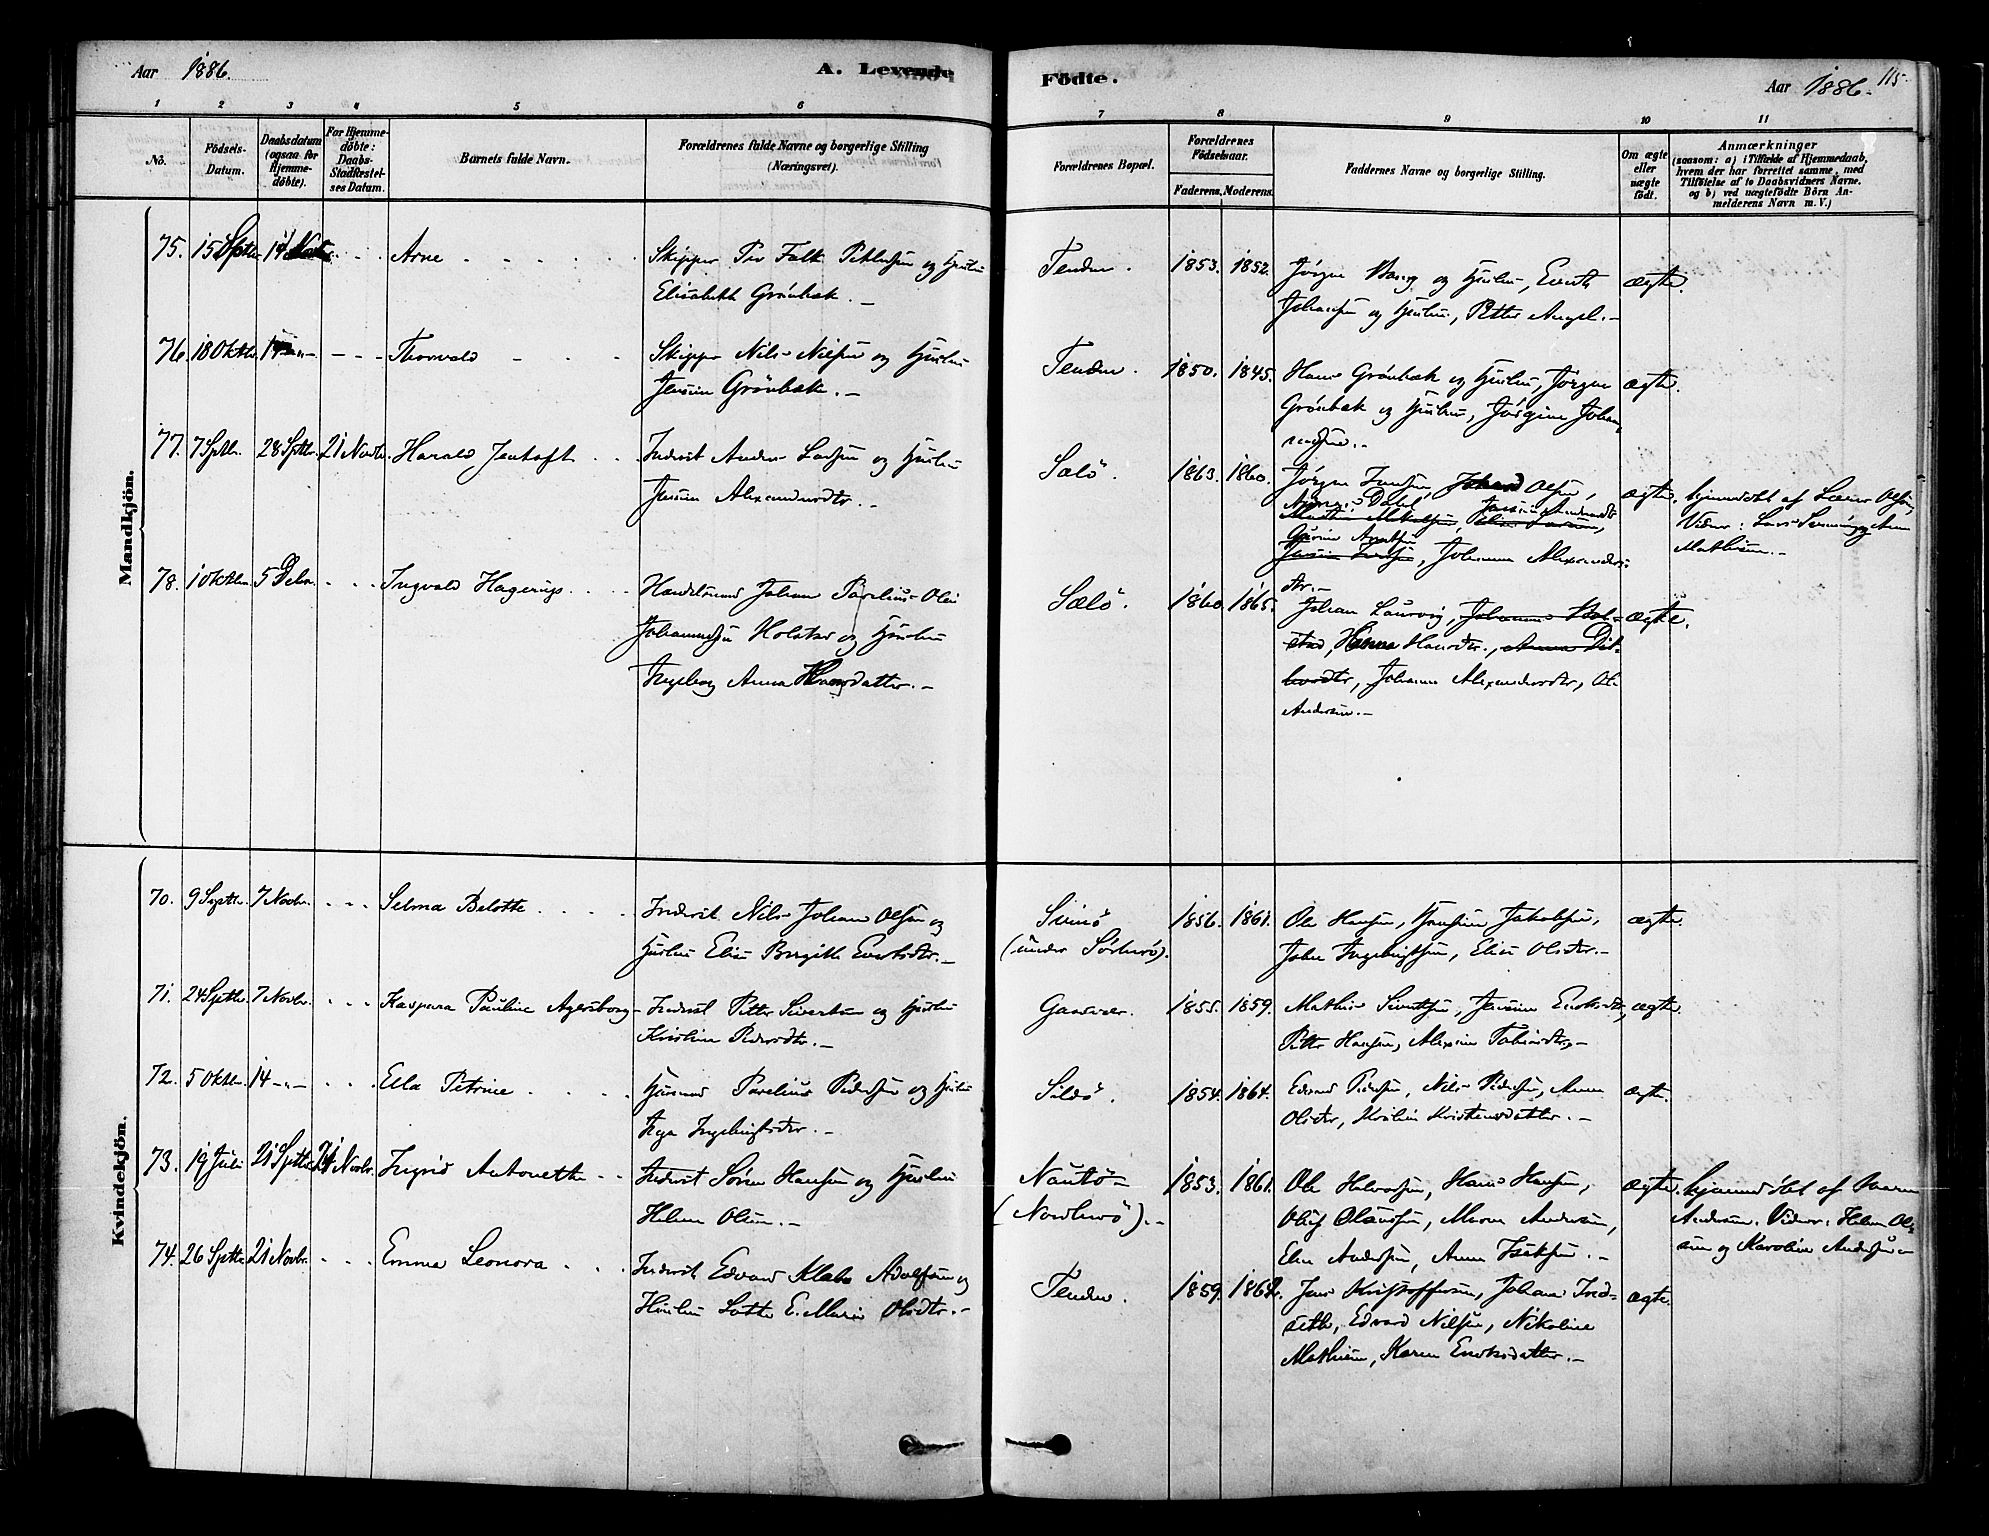 Aar 1886.
A. Levende
Födte.
Aar 1886.
115.
1 2 3 4 5 6 7 8 9 10 11
No.
Födsels-
Datum.
Daabsdatum
(ogsaa for
Hjemme-
döbte).
For Hjemme-
döbte:
Daabs-
Stadfæstel-
ses Datum.
Barnets fulde Navn.
Forældrenes fulde Navne og borgerlige Stilling
(Næringsvei).
Forældrenes Bopæl.
Forældrenes
Födselsaar.
Faderens. Moderens.
Faddernes Navne og borgerlige Stilling.
Om ægte
eller
uægte
födt.
Anmærkninger
(saasom: a) i Tilfælde af Hjemmedaab,
hvem der har forrettet samme, med
Tilföielse af to Daabsvidners Navne.
og b) ved uægtefödte Börn An-
melderens Navn m. V.)
Mandkjön.
75. 15 Septbr. 14 Arne Skipper Per Falk og Hustru
Elisabeth Grönbæk.
Tenden. 1853. 1852. Jörgen og Hustru, Evert
Johansen og Hustru, Petter Angel.
ægte.
76. 18 Oktbr. 14 Thorvald Skipper Nils Nilsen og Hustru
Jensine Grönbæk.
Tenden. 1850. 1845. Hans Grönbæk og Hustru, Jörgen
Grönbæk og Hustru, Jörgine Johan-
ægte.
77. 7 Septbr. 28 Septbr. 21 Novbr. Harald Jentoft Inderst Anders Larsen og Hustru
Jensine Alexandersdtr.
Sælö. 1863. 1860. Jörgen Olsen,
Dahl,
Johanna Alexanders-
dtr.
ægte. hjemmedöbt af Olsen,
Vidner: Lars
Mathisen.
78. 1 Oktbr. 5 Debr. Ingvald Hagerup Handelsmand Johan Parelius Olai
Johannesen Holster og Hustru
Ingeborg Anna Hansdatter.
Sælö. 1860. 1865. Johan Laurvig, Johannes Hol-
stad, Hanna Hansdtr.,
Johanna Alexandersdtr, Ole
Andersen.
ægte.
Kvindekjön.
70. 9 Septbr. 7 Novbr. Selma Belotte Inderst Nils Johan Olsen og
Hustru Elise Birgitte Evertsdtr.
Svinö
(under Sörherö).
1856. 1861. Ole Hansen, Jakobsen,
John Ingebrigtsen, Elise Olsdtr.
ægte.
71. 24 Septbr. 7 Novbr. Kaspara Pauline Agersborg Inderst Petter Sivertsen og Hustru
Kristine Pedersdtr.
Gaasvær. 1855. 1859. Mathis Sivertsen, Jensine Enoksdtr,
Petter Hansen, Alexine Tobiasdtr.
ægte.
72. 5 Oktbr. 14 Ella Petrine Husmand Parelius Pedersen og Hustru
Inga Ingebrigtsdtr.
Sildö. 1854. 1864. Edvard Pedersen, Nils Pedersen, Anna
Olsdtr, Kristine Kristensdatter.
ægte.
73. 19 Juli 21 Septbr. 21 Novbr. Ingrid Antonette Inderst Sören Hansen og Hustru
Helene Olsen.
Nautö
(Nordherö).
1853. 1861. Ole Halvorsen, Hans Hansen,
Oluf Olaussen, Maren Andersen,
Elen Andersen, Anna Isaksen.
ægte. hjemmedöbt af Maren
Andersen. Vidner: Helene Ol-
sen og Karoline Andersen
74. 26 Septbr. 21 Novbr. Emma Leonora Inderst Edvard Klabo Adolfsen og
Hustru Lotte E. Marie Olsdtr.
Tenden. 1859. 1862. Jens Kristoffersen, Johan Tred-
sæth, Edvard Nilsen, Nikoline
Mathisen, Karen Enoksdatter.
ægte.